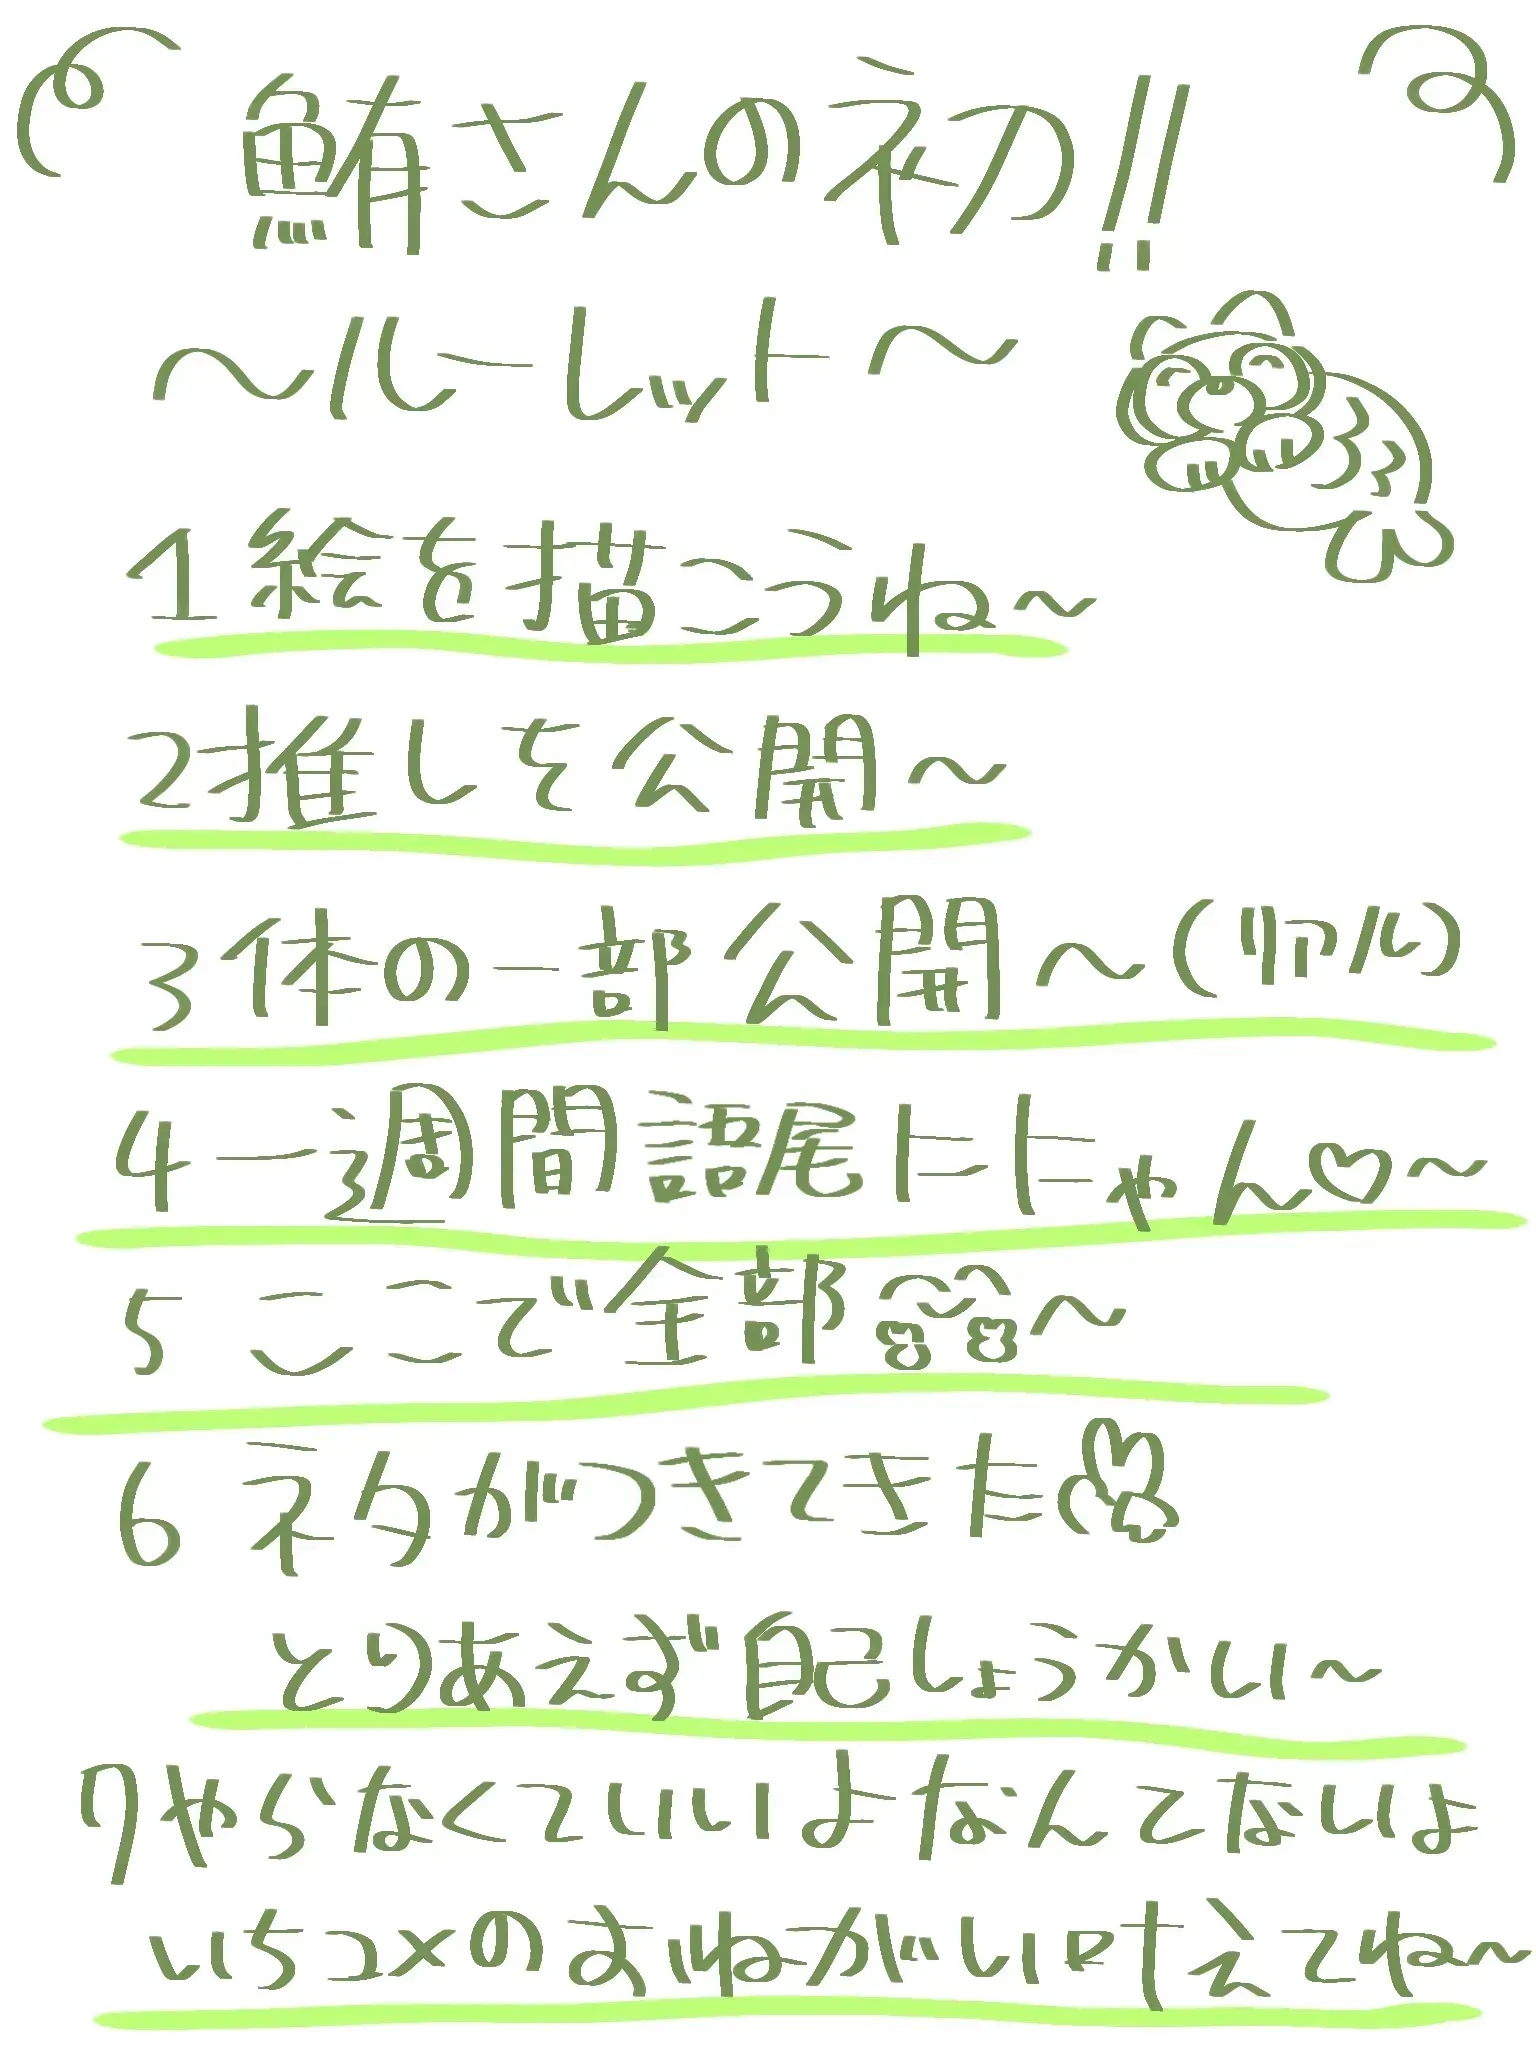 鮪さんの初!!
〜ルーレット〜
1 絵を描こうね〜
2 推しを公開〜
3 体の一部公開〜(リアル)
4 一週間語尾ににゃん♡〜
5 ここで全部〜
6 ネタがつきてきた
とりあえず自己しょうかい〜
7 やらなくていいよなんてないよ
いちコメのおねがい叶えてね〜